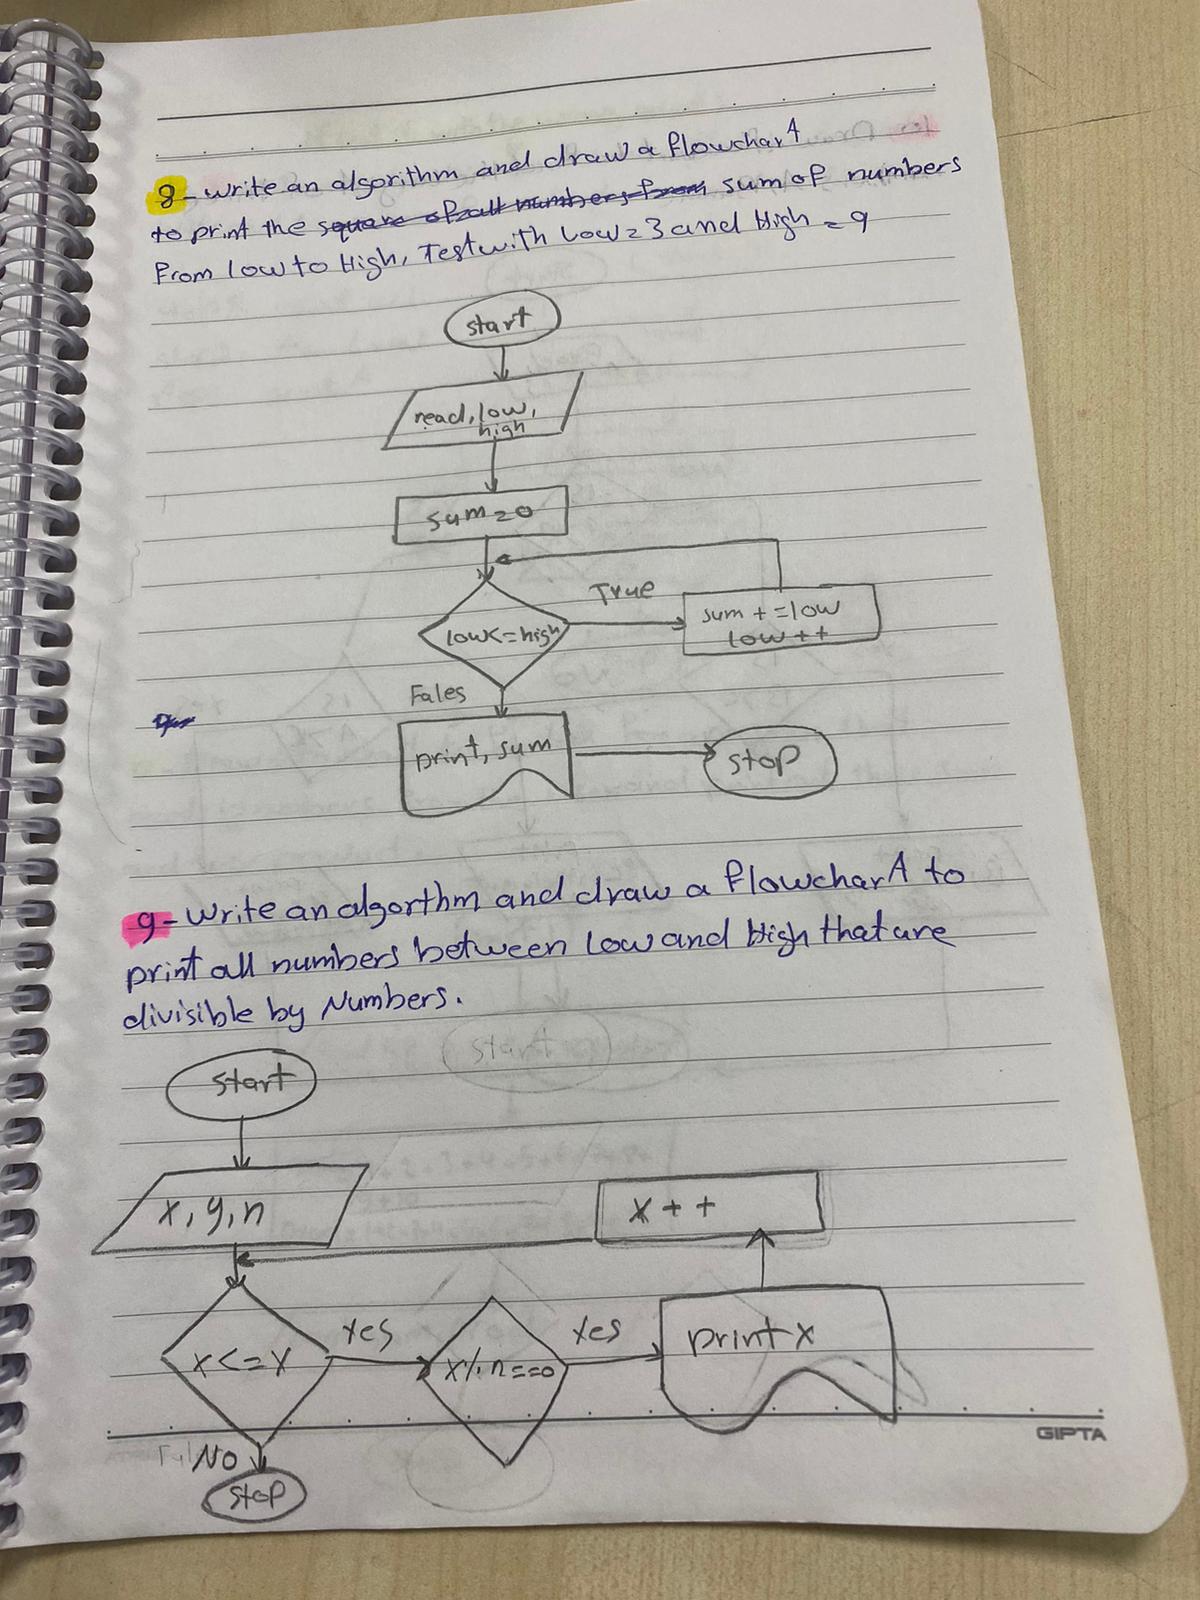 8- write an algorithm and draw a flowchart
to print the square of all numbers from sum of numbers
From low to High, Test with low = 3 and High = 9
start
read, low,
high
sum = 0
True
low <= high
sum + = low
low + +
Fales
print, sum
stop
9- Write an algorthm and draw a flowchart to
print all numbers between low and High that are
divisible by Numbers.
start
start
x, y, n
x + +
x <= y
Yes
x % n == 0
Yes
print x
GIPTA
No
stop